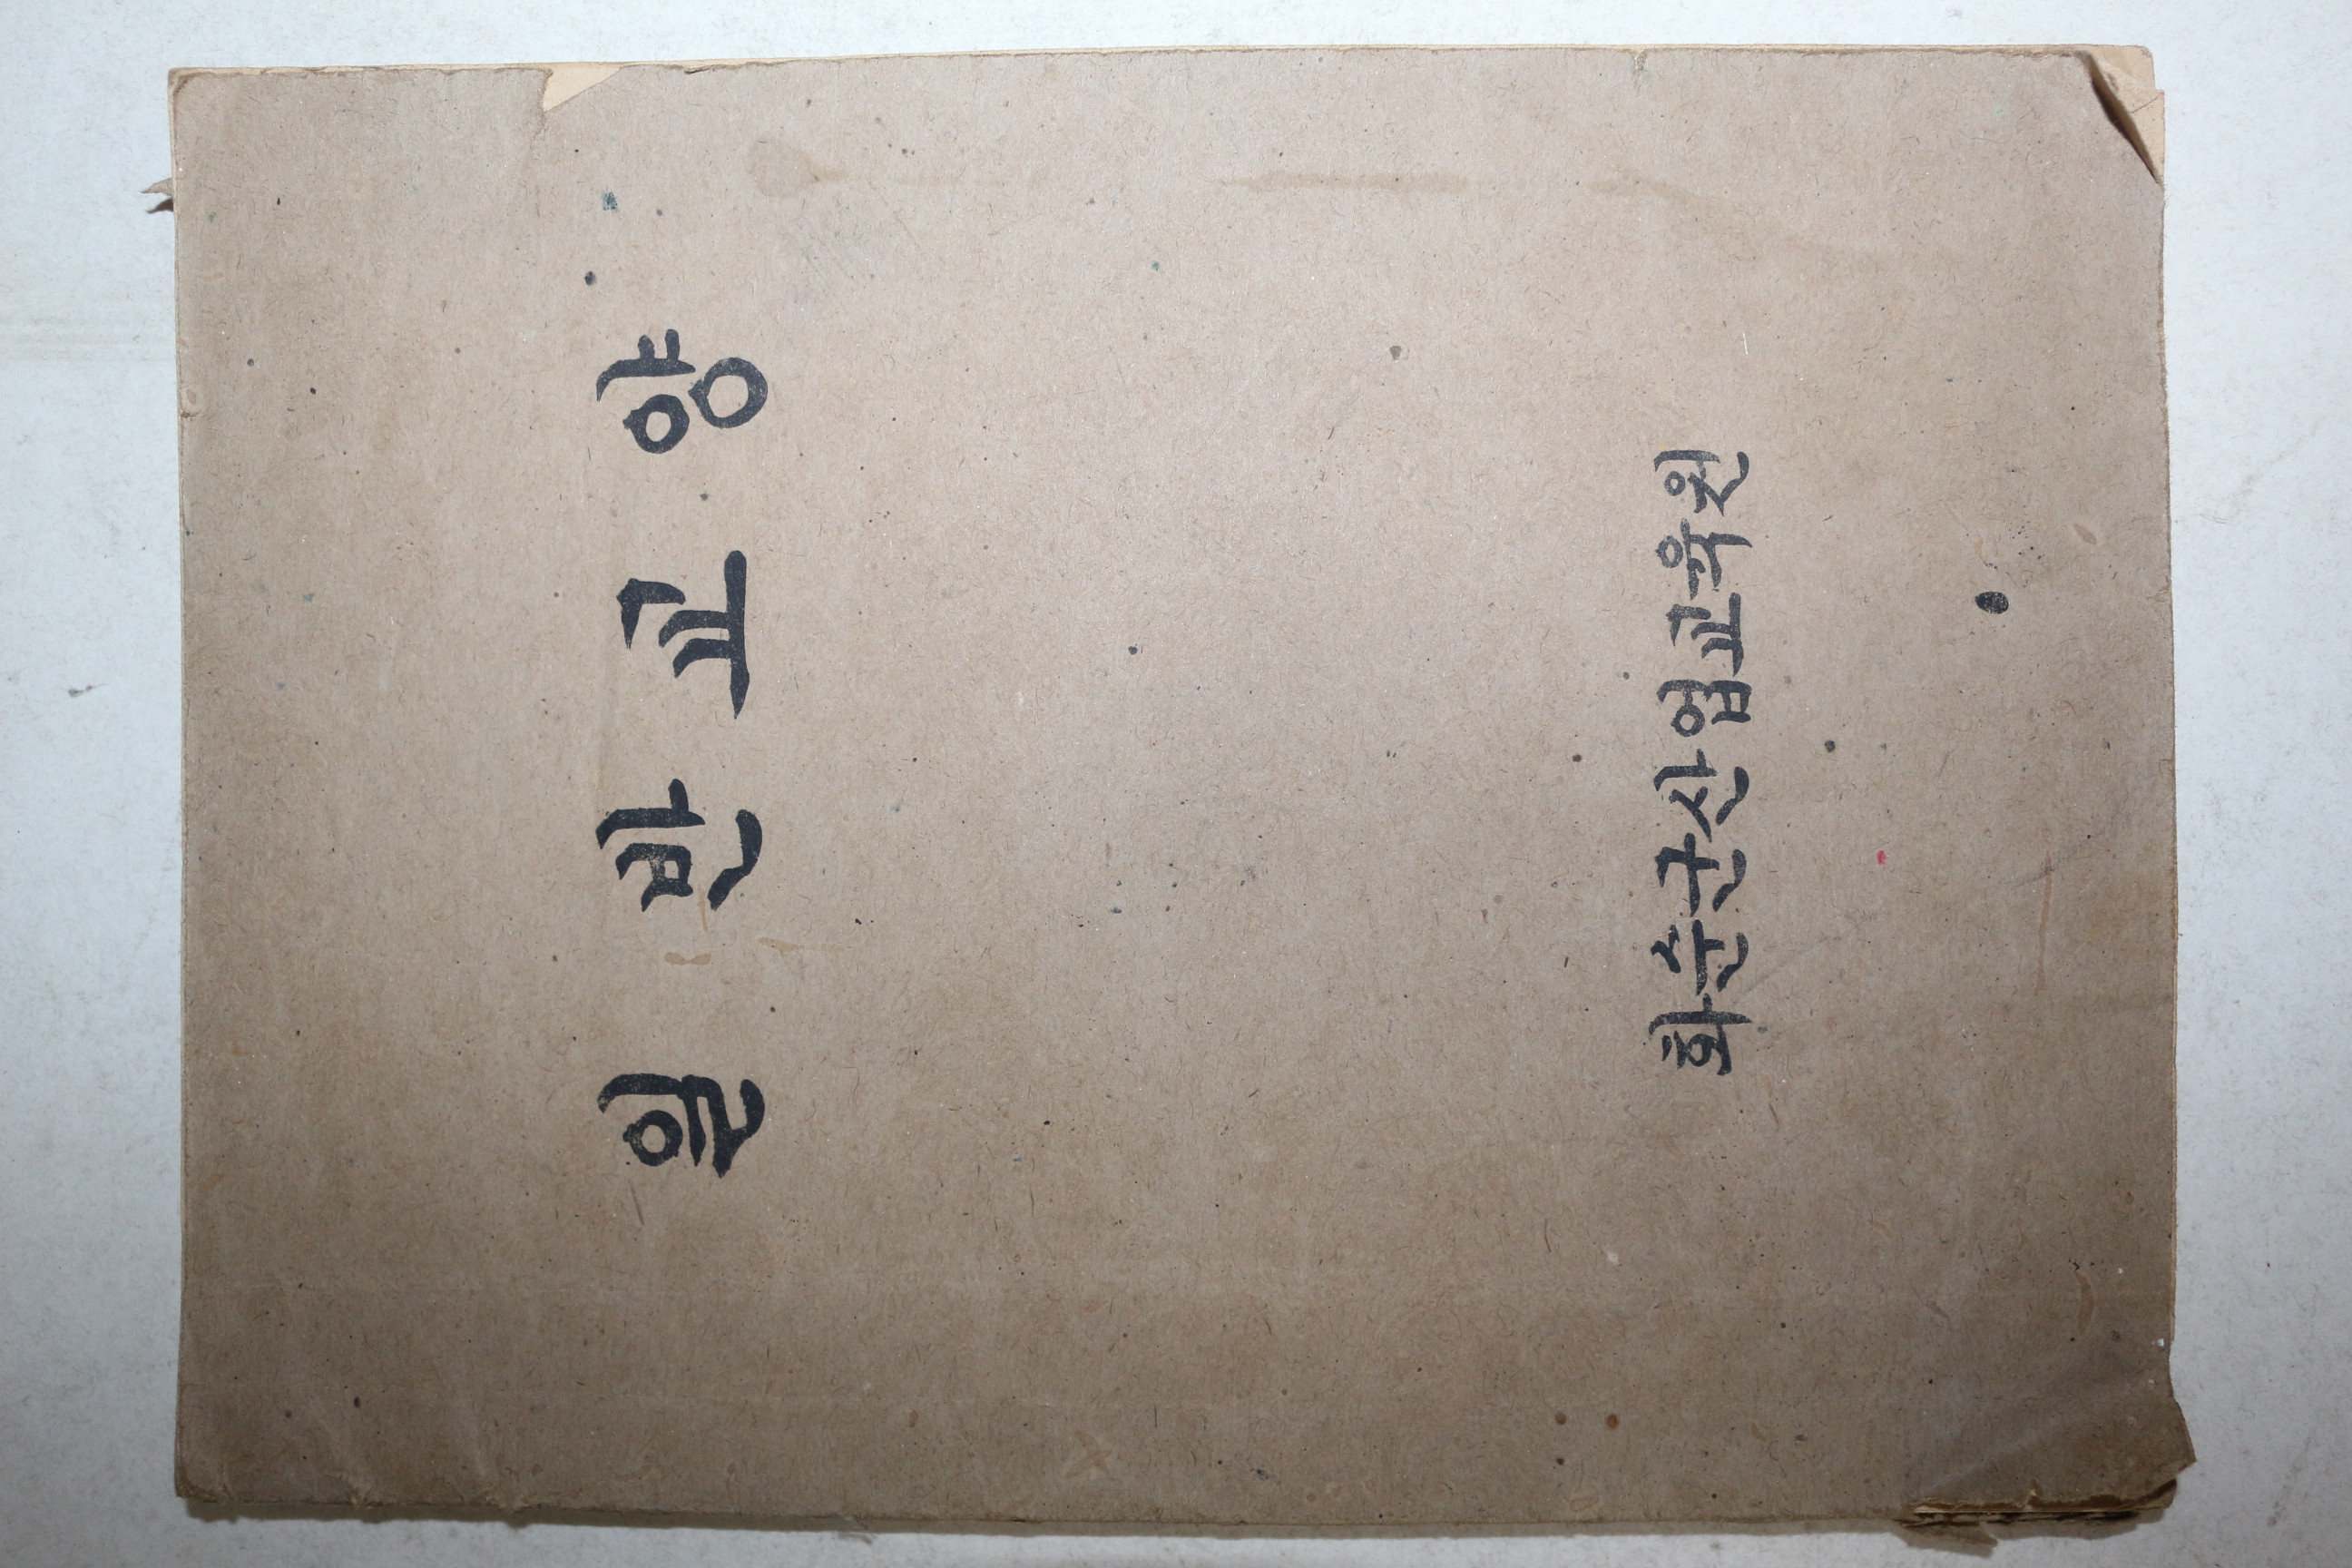 일 반 교 양
화순군산업교육원